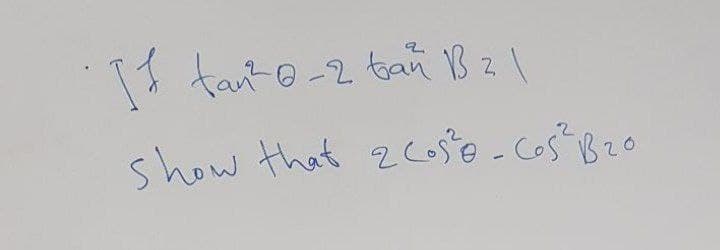 If tan²θ - 2 tan²B = 1
show that 2 cos²θ - cos²B = 0